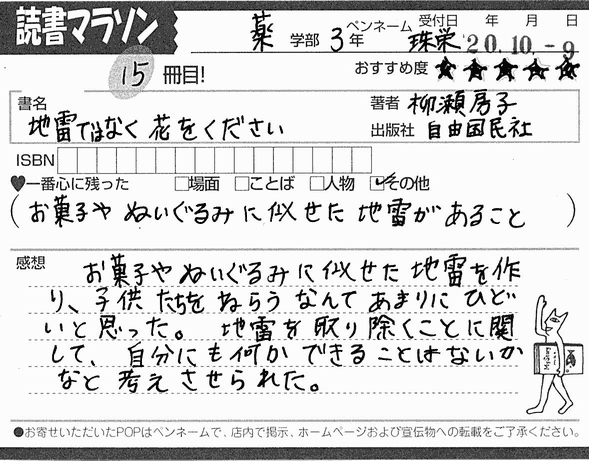 読書マラソン
薬 学部 3年 ペンネーム 珠栄 受付日 年 月 日
20.10.-9
15 冊目! おすすめ度 ★★★★★
書名 著者 柳瀬房子
地雷ではなく花をください 出版社 自由国民社
ISBN
♥一番心に残った □場面 □ことば □人物 ☑その他
(お菓子やぬいぐるみに似せた地雷があること)
感想
お菓子やぬいぐるみに似せた地雷を作
り、子供たちをねらうなんてあまりにひど
いと思った。地雷を取り除くことに関
して、自分にも何かできることはないか
なと考えさせられた。
●お寄せいただいたPOPはペンネームで、店内で掲示、ホームページおよび宣伝物への転載をご了承ください。